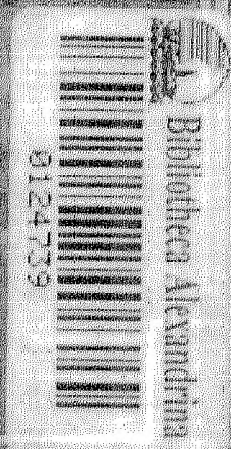 Bibliotheca Alexandrina
0124739